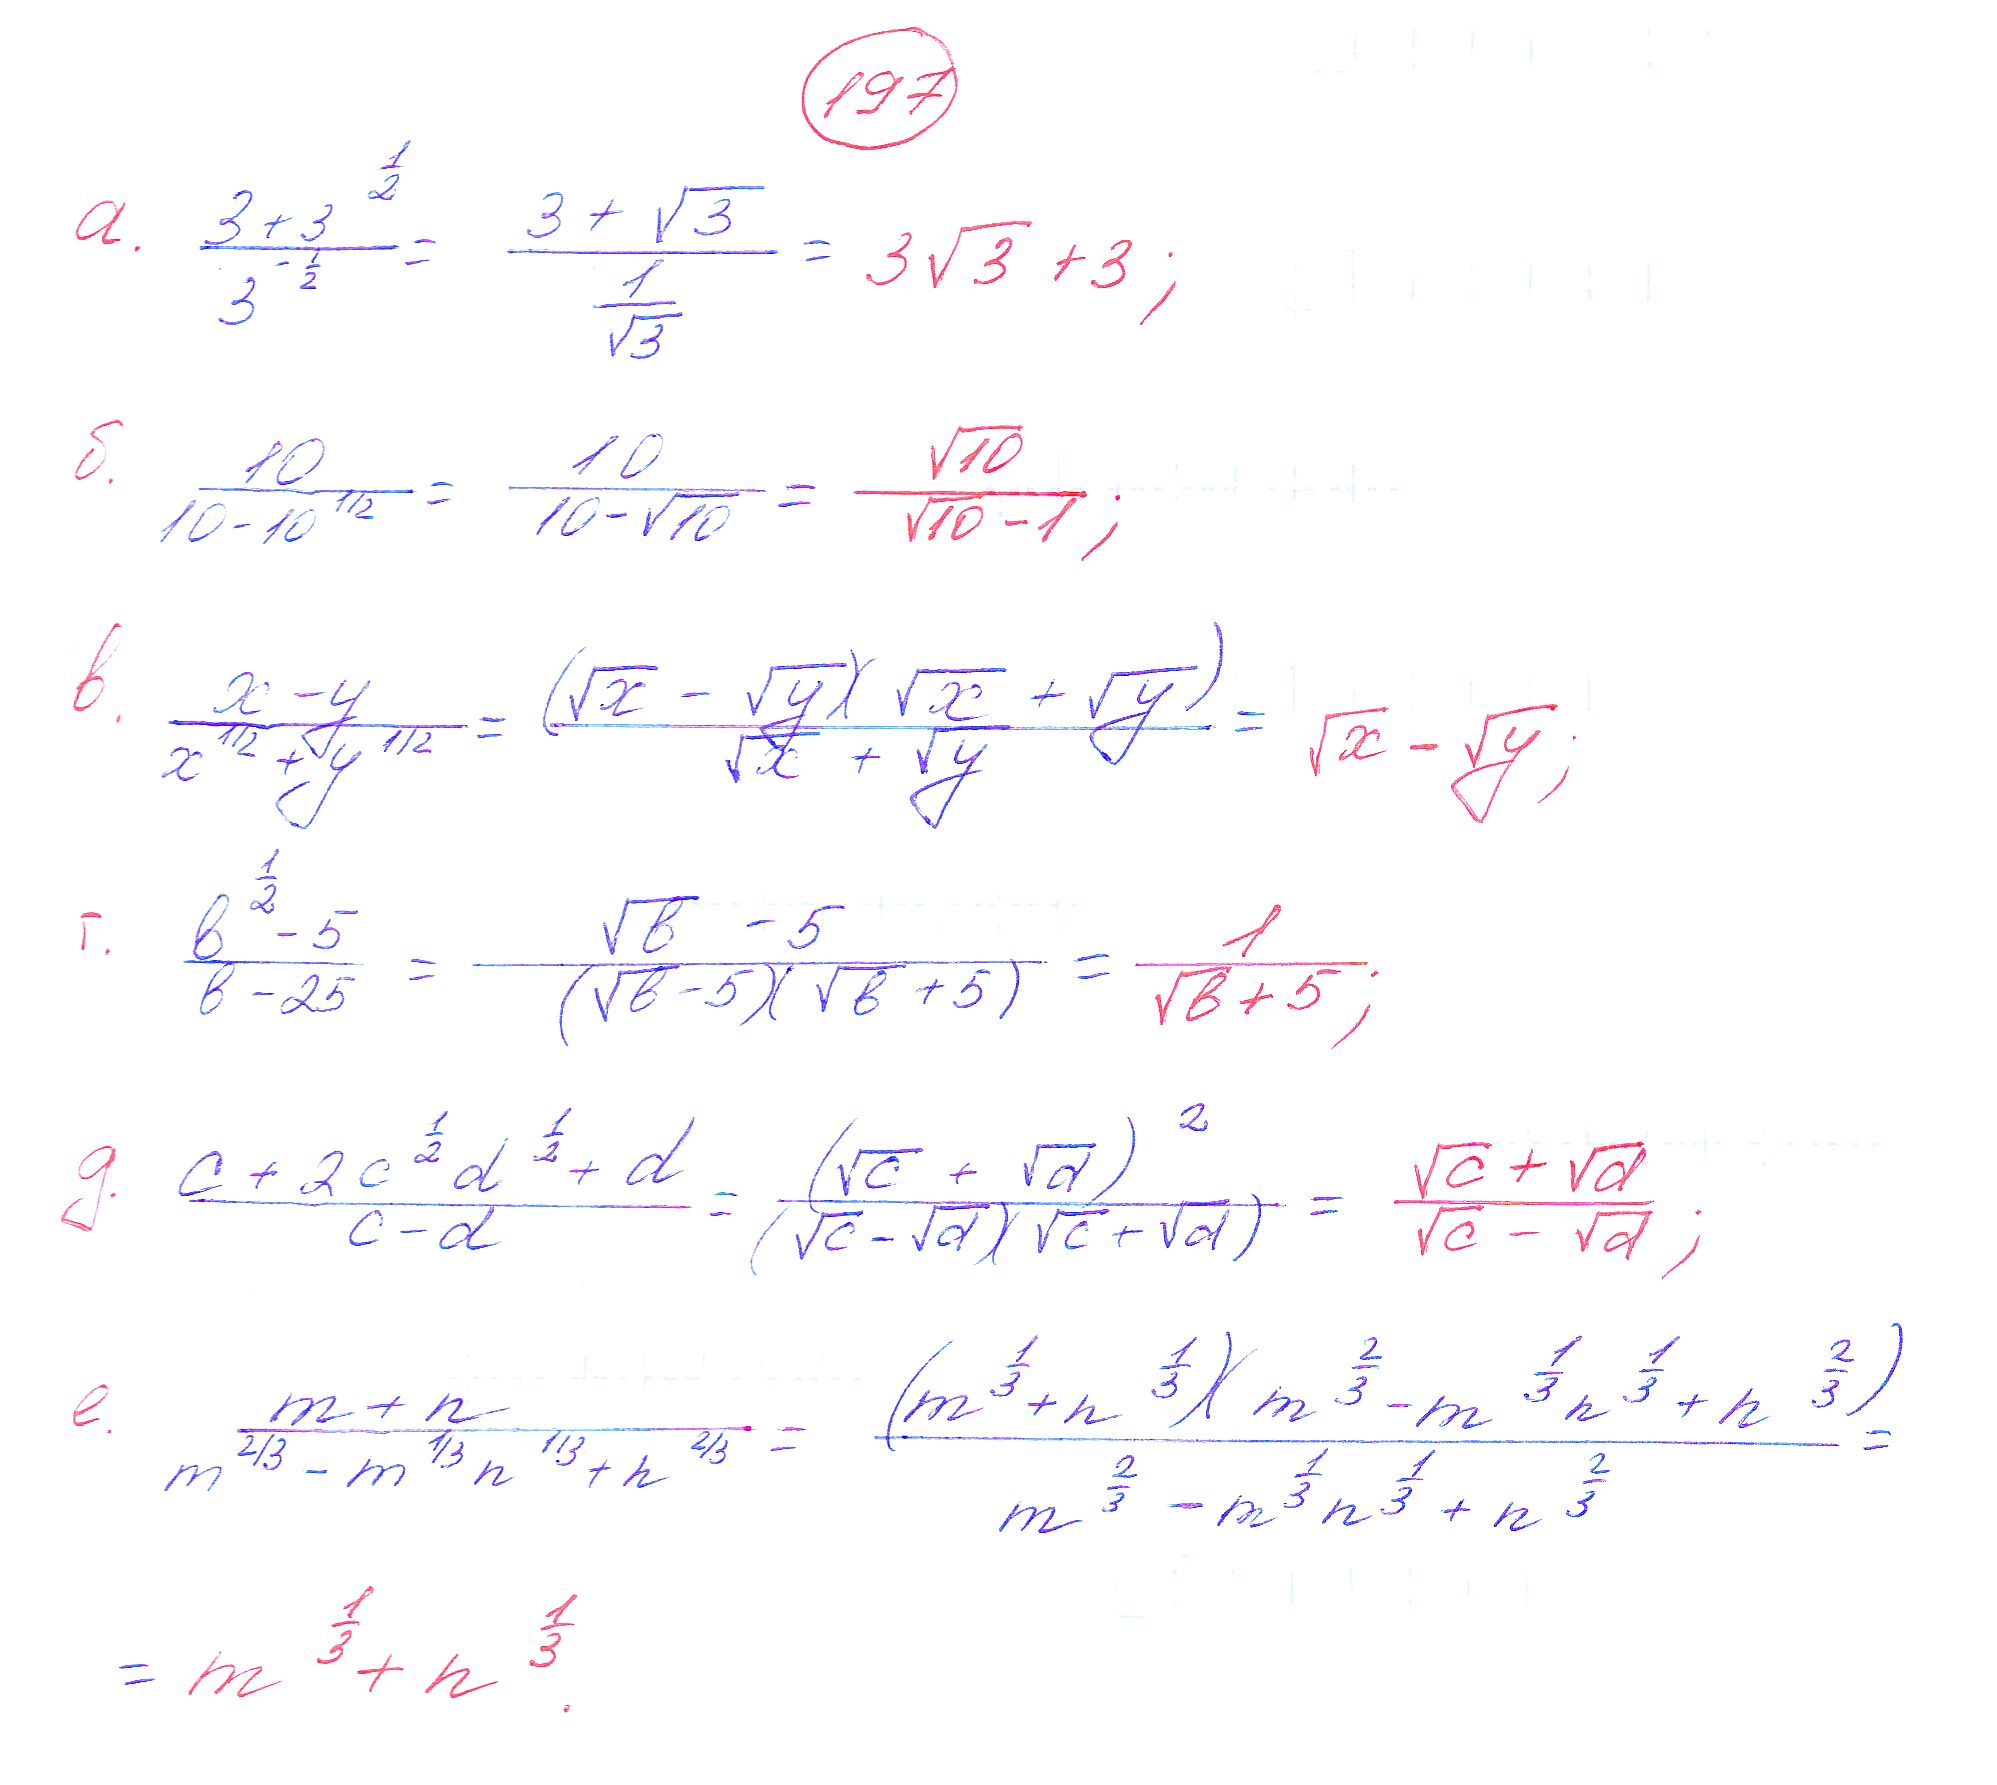 197
а. \frac{3+3^{\frac{1}{2}}}{3^{-\frac{1}{2}}} = \frac{3+\sqrt{3}}{\frac{1}{\sqrt{3}}} = 3\sqrt{3}+3;
б. \frac{10}{10-10^{1/2}} = \frac{10}{10-\sqrt{10}} = \frac{\sqrt{10}}{\sqrt{10}-1};
в. \frac{x-y}{x^{1/2}+y^{1/2}} = \frac{(\sqrt{x}-\sqrt{y})(\sqrt{x}+\sqrt{y})}{\sqrt{x}+\sqrt{y}} = \sqrt{x}-\sqrt{y};
г. \frac{b^{\frac{1}{2}}-5}{b-25} = \frac{\sqrt{b}-5}{(\sqrt{b}-5)(\sqrt{b}+5)} = \frac{1}{\sqrt{b}+5};
д. \frac{c+2c^{\frac{1}{2}}d^{\frac{1}{2}}+d}{c-d} = \frac{(\sqrt{c}+\sqrt{d})^2}{(\sqrt{c}-\sqrt{d})(\sqrt{c}+\sqrt{d})} = \frac{\sqrt{c}+\sqrt{d}}{\sqrt{c}-\sqrt{d}};
е. \frac{m+n}{m^{2/3}-m^{1/3}n^{1/3}+n^{2/3}} = \frac{(m^{\frac{1}{3}}+n^{\frac{1}{3}})(m^{\frac{2}{3}}-m^{\frac{1}{3}}n^{\frac{1}{3}}+n^{\frac{2}{3}})}{m^{\frac{2}{3}}-m^{\frac{1}{3}}n^{\frac{1}{3}}+n^{\frac{2}{3}}} =
= m^{\frac{1}{3}}+n^{\frac{1}{3}}.